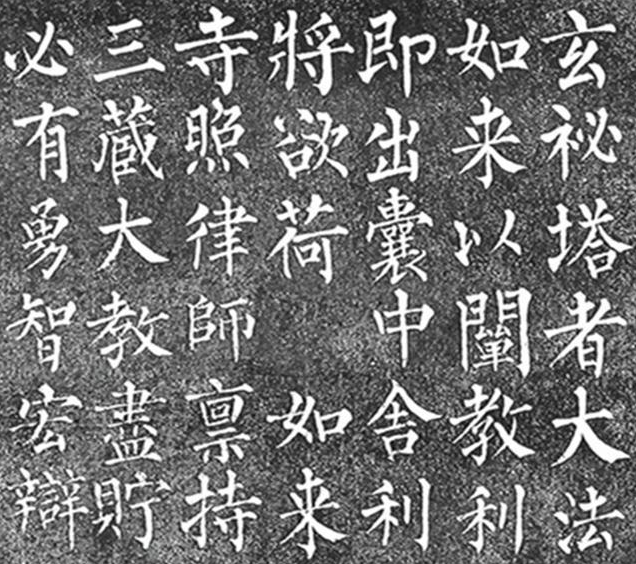 玄祕塔者大法
如来以闡教利
即出囊中舍利
將欲荷 如来
寺照律師禀持
三藏大教盡貯
必有勇智宏辯